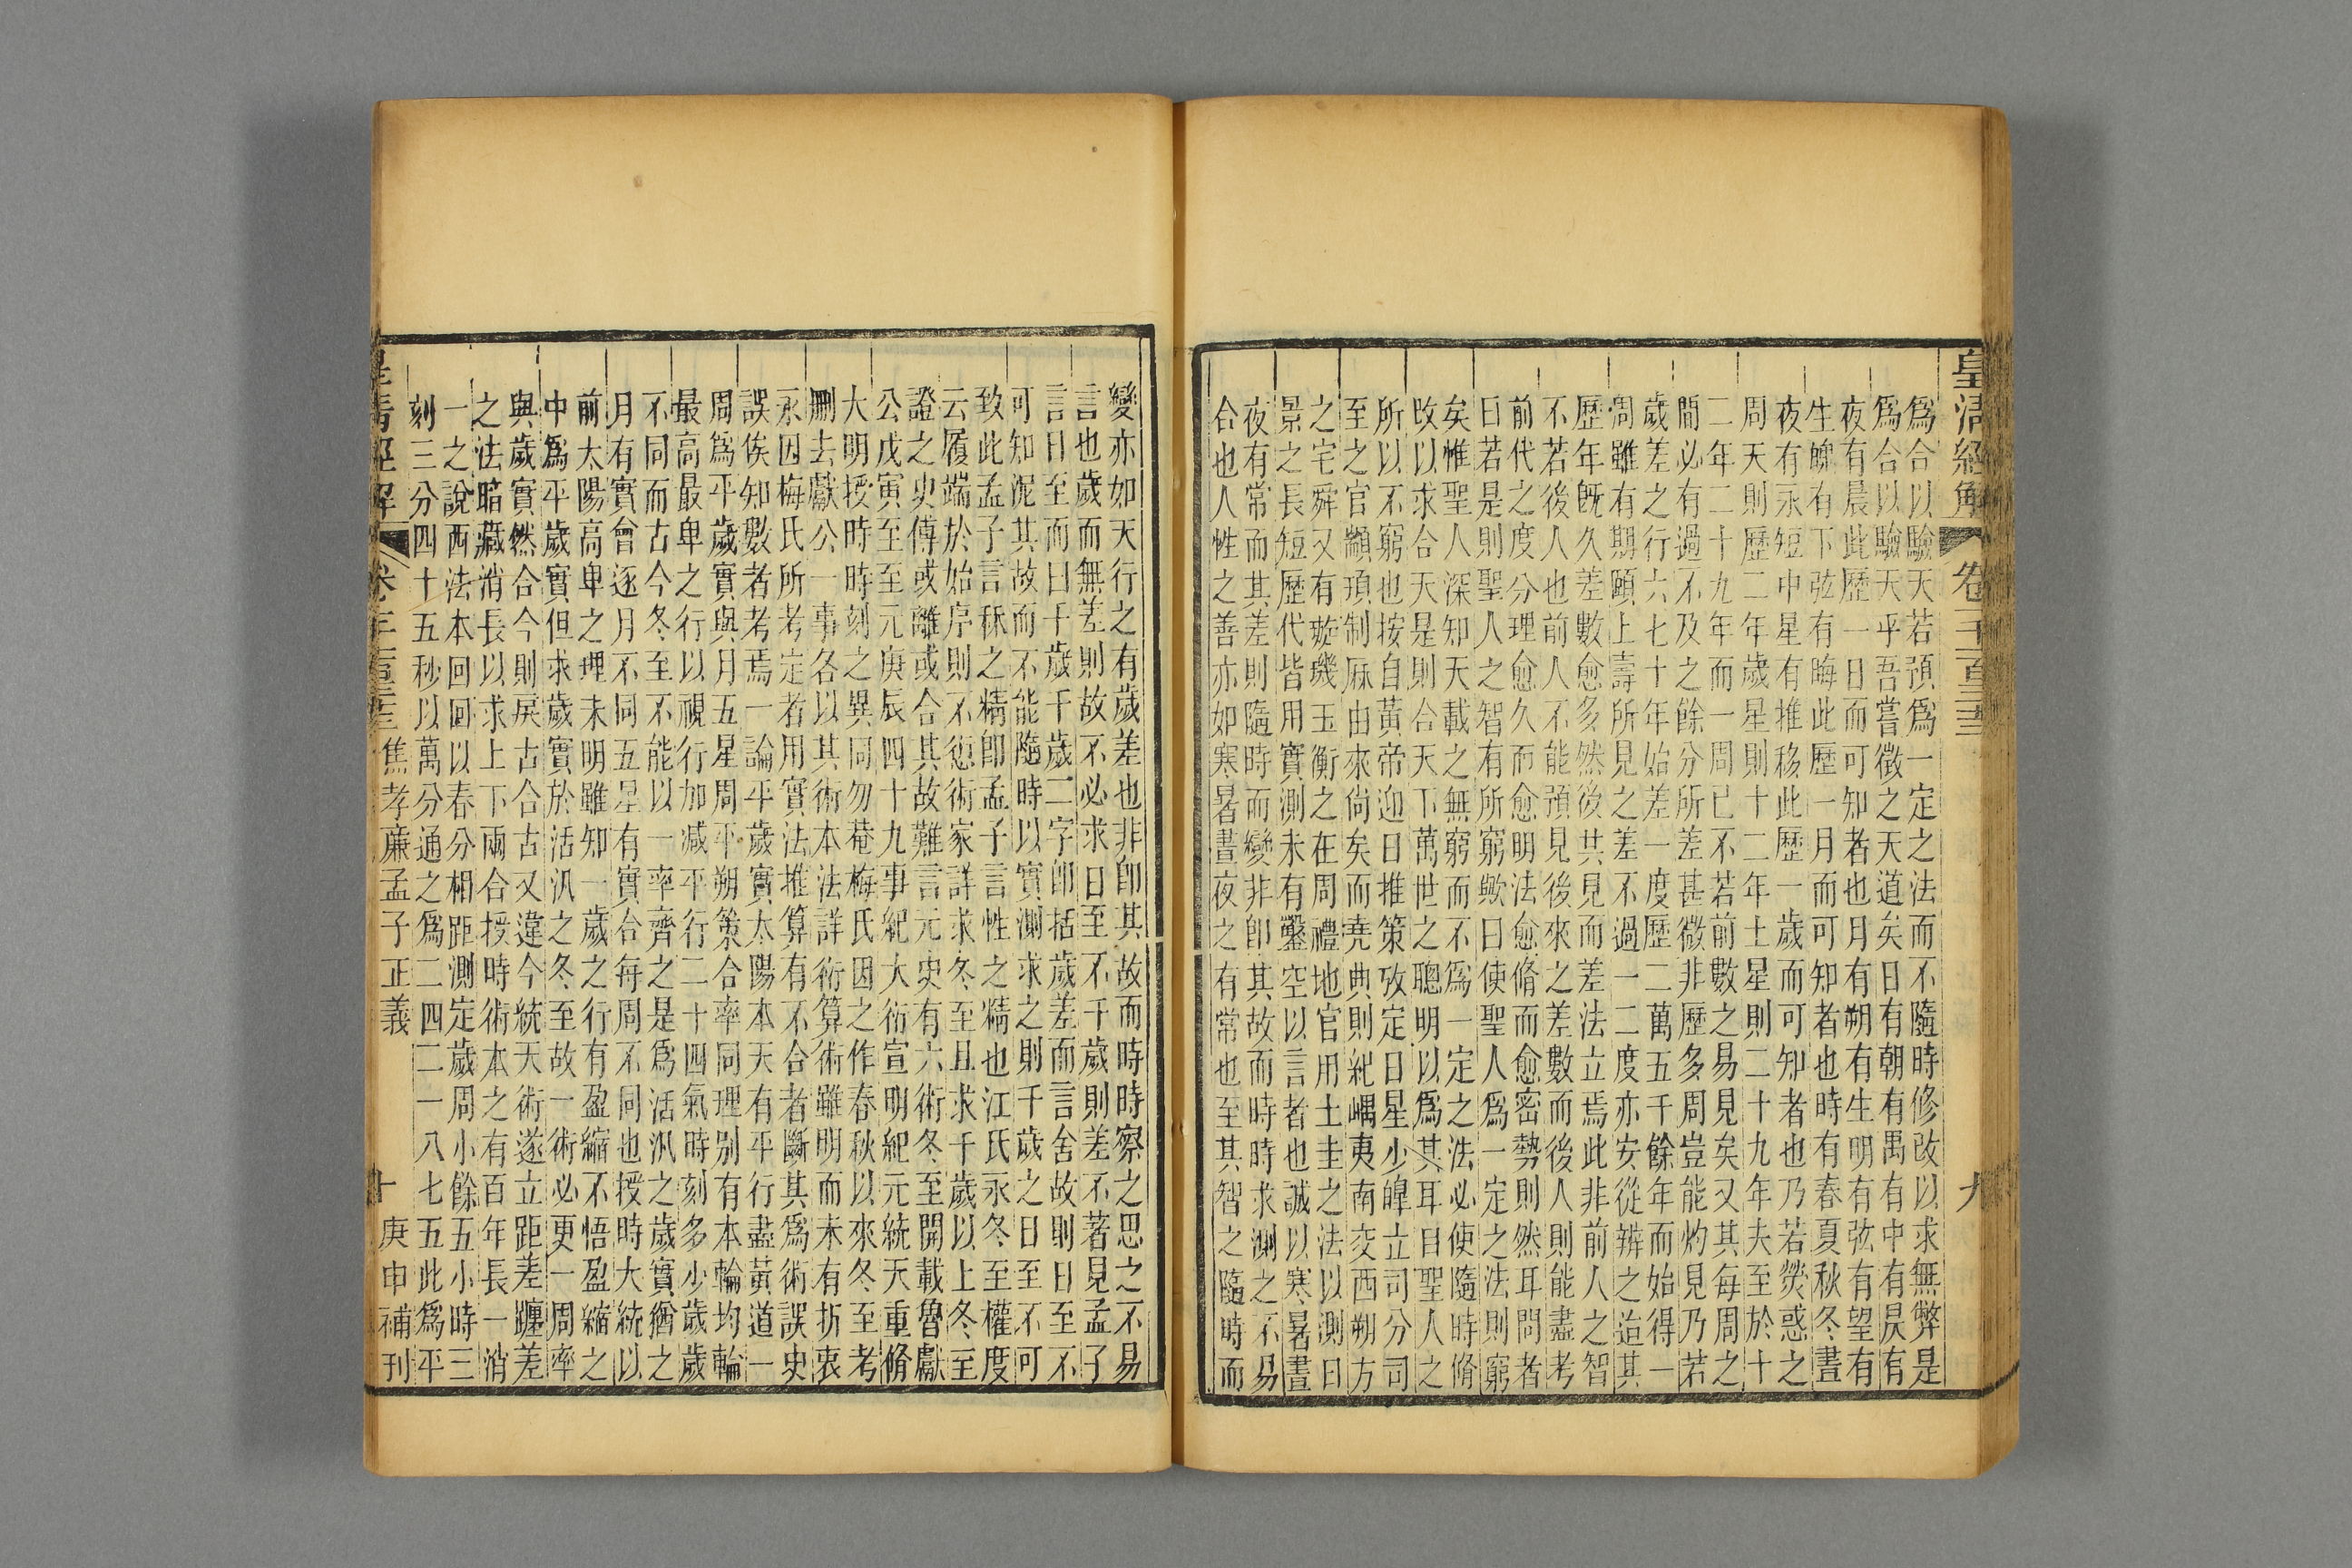 皇清經解 卷千百三三 九
爲合以驗天若預爲一定之法而不隨時修改以求無弊是
爲合以驗天平吾嘗徵之天道矣日有朝有禺有中有昃有
夜有晨此歷一日而可知者也月有朔有生明有弦有望有
生魄有下弦有晦此歷一月而可知者也時有春夏秋冬晝
夜有永短中星有推移此歷一歲而可知者也乃若熒惑之
周天則歷二年歲星則十二年土星則二十九年夫至於十
二年二十九年而一周已不若前數之易見矣又其每周之
間必有過不及之餘分所差甚微非歷多周豈能灼見乃若
歲差之行六七十年始差一度歷二萬五千餘年而始得一
周雖有期頤上壽所見之差不過一二度亦安從辨之迨其
歷年既久差數愈多然後共見而差法立焉此非前人之智
不若後人也前人不能預見後來之差數而後人則能盡考
前代之度分理愈久而愈明法愈脩而愈密勢則然耳問者
曰若是則聖人之智有所窮歟曰使聖人爲一定之法則窮
矣惟聖人深知天載之無窮而不爲一定之法必使隨時脩
改以求合天是則合天下萬世之聰明以爲其耳目聖人之
所以不窮也按自黃帝迎日推策攷定日星少皥立司分司
至之官顓頊制厤由來尙矣而堯典則紀嵎夷南交西朔方
之宅舜又有璇璣玉衡之在周禮地官用土圭之法以測日
景之長短歷代皆用實測未有鑿空以言者也誠以寒暑晝
夜有常而其差則隨時而變非卽其故而時時求測之不易
合也人性之善亦如寒暑晝夜之有常也至其智之隨時而
變亦如天行之有歲差也非卽其故而時時察之思之不易
言也歲而無差則故不必求日至不千歲則差不著見孟了
言日至而曰千歲千歲二字卽括歲差而言舍故則日至不
可知泥其故而不能隨時以實測求之則千歲之日至不可
致此孟子言秝之精卽孟子言性之精也江氏永冬至權度
云履端於始序則不愆術家詳求冬至且求千歲以上冬至
證之史傳或離或合其故難言元史有六術冬至開載魯獻
公戊寅至至元庚辰四十九事紀大衍宣明紀元統天重脩
大明授時時刻之異同勿菴梅氏因之作春秋以來冬至考
刪去獻公一事各以其術本法詳衍算術雖明而未有折衷
永因梅氏所考定者用實法推算有不合者斷其爲術誤史
誤俟知數者考焉一論平歲實太陽本天有平行盡黃道一
周爲平歲實與月五星周平朔策合率同理别有本輪均輪
最高最卑之行以視行加減平行二十四氣時刻多少歲歲
不同而古今冬至不能以一率齊之是爲活汎之歲實猶之
月有實會逐月不同五星有實合每周不同也授時大統以
前太陽高卑之理未明雖知一歲之行有盈縮不悟盈縮之
中爲平歲實但求歲實於活汎之冬至故一術必更一周率
與歲實然合今則戾古合古又違今統天術遂立距差躔差
之法暗藏消長以求上下兩合授時術本之有百年長一消
一之說西法本回回以春分相距測定歲周小餘五小時三
刻三分四十五秒以萬分通之爲二四二一八七五此爲平
皇清經解 焦孝廉孟子正義 十 庚申補刊